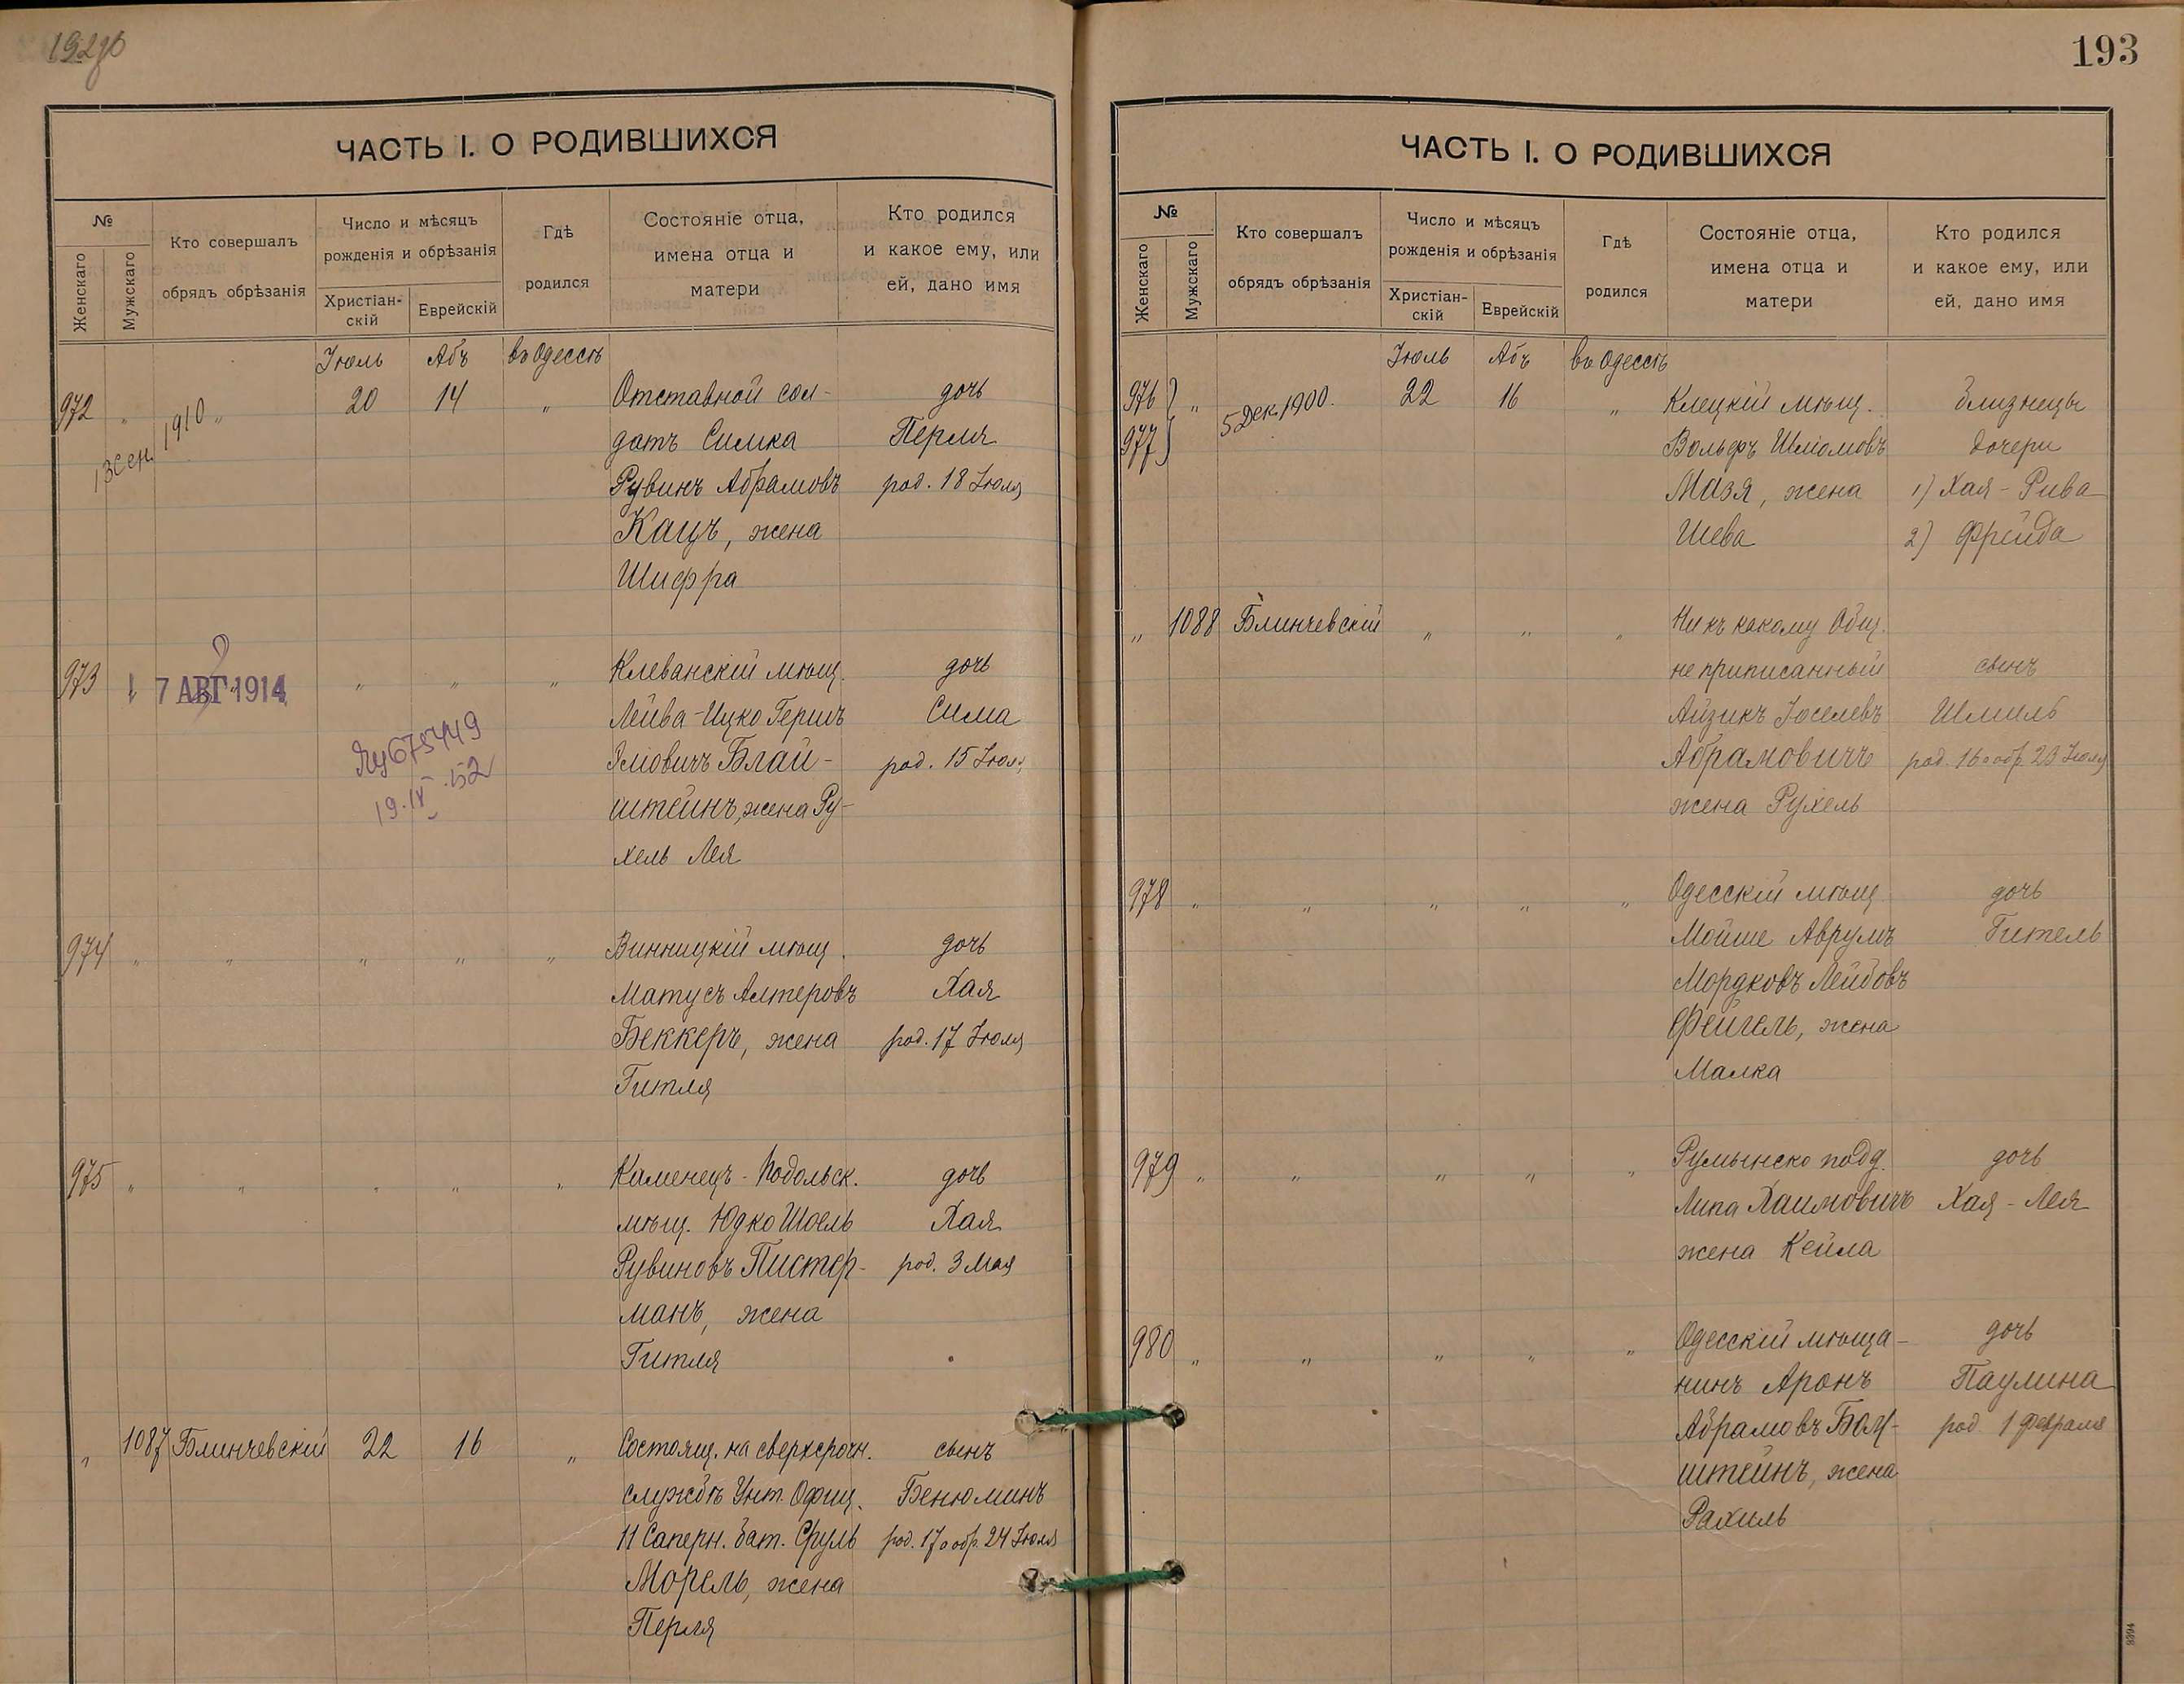 ЧАСТЬ I. О РОДИВШИХСЯ
№
Женскаго
Мужскаго
Кто совершалъ
обрядъ обрѣзанія
Число и мѣсяцъ
рожденія и обрѣзанія
Христіан-
скій
Еврейскій
Гдѣ
родился
Состояніе отца,
имена отца и
матери
Кто родился
и какое ему, или
ей, дано имя
Іюль Абъ въ Одессѣ
972 „ „ 20 14 „ Отставной сол- дочь
13 сен. 1910
датъ Симка Перля
Рувинъ Абрамовъ род. 18 Іюля
Кацъ, жена
Шифра
973 7 АВГ 1914 „ „ „ Клеванскій мѣщ. дочь
Лейва-Ицко Гершъ Сима
Блай- род. 15 Іюля
штейнъ, жена Ру-
хель Лея
675449
19.IV.52
974 „ „ „ „ „ Винницкій мѣщ. дочь
Матусъ Алтеровъ Хая
Беккеръ, жена род. 17 Іюля
Гитля
975 „ „ „ „ „ Каменецъ-Подольск. дочь
мѣщ. Юдко Шоель Хая
Рувиновъ Пистер- род. 3 Мая
манъ, жена
Гитля
„ 1087 Блинчевскій 22 16 „ Состоящ. на сверхсрочн. сынъ
службѣ Унт. Офиц. Бенюминъ
11 Саперн. бат. Сруль род. 17 обр. 24 Іюля
Морель, жена
Перля
193
ЧАСТЬ I. О РОДИВШИХСЯ
№
Женскаго
Мужскаго
Кто совершалъ
обрядъ обрѣзанія
Число и мѣсяцъ
рожденія и обрѣзанія
Христіан-
скій
Еврейскій
Гдѣ
родился
Состояніе отца,
имена отца и
матери
Кто родился
и какое ему, или
ей, дано имя
Іюль Абъ въ Одессѣ
976 „ 5 Дек. 1900. 22 16 „ Клецкій мѣщ. близнецы
977 Вольфъ Шліомовъ дочери
Мазя, жена 1) Хая-Рива
Шева 2) Фрейда
„ 1088 Блинчевскій „ „ „ Ни къ какому Общ.
не приписанный сынъ
Айзикъ Іоселевъ Шмиль
Абрамовичъ род. 16 обр. 23 Іюля
жена Рухель
978 „ „ „ „ „ Одесскій мѣщ. дочь
Мойше Аврумъ Гитель
Мордковъ Лейбовъ
Фейгель, жена
Малка
979 „ „ „ „ „ Румынско подд. дочь
Липа Хаимовичъ Хая-Лея
жена Кейла
980 „ „ „ „ „ Одесскій мѣща- дочь
нинъ Аронъ Паулина
Абрамовъ род. 1 Февраля
штейнъ, жена
Рахиль